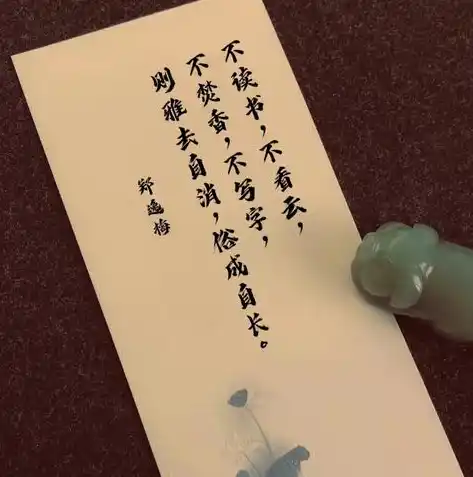 不读书，不看云，
不焚香，不写字，
则雅去自消，俗成自长。
郑逸梅